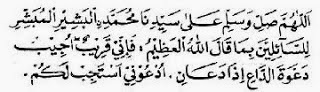 اَللّٰهُمَّ صَلِّ وَسَلِّمْ عَلٰى سَيِّدِنَا مُحَمَّدِ ۨالْبَشِيْرِ الْمُبَشِّرِ
لِلسَّائِلِيْنَ بِمَا قَالَ اللّٰهُ الْعَظِيْمُ ؛ فَاِنِّيْ قَرِيْبٌ اُجِيْبُ
دَعْوَةَ الدَّاعِ اِذَا دَعَانِ ، اُدْعُوْنِيْ اَسْتَجِبْ لَكُمْ .